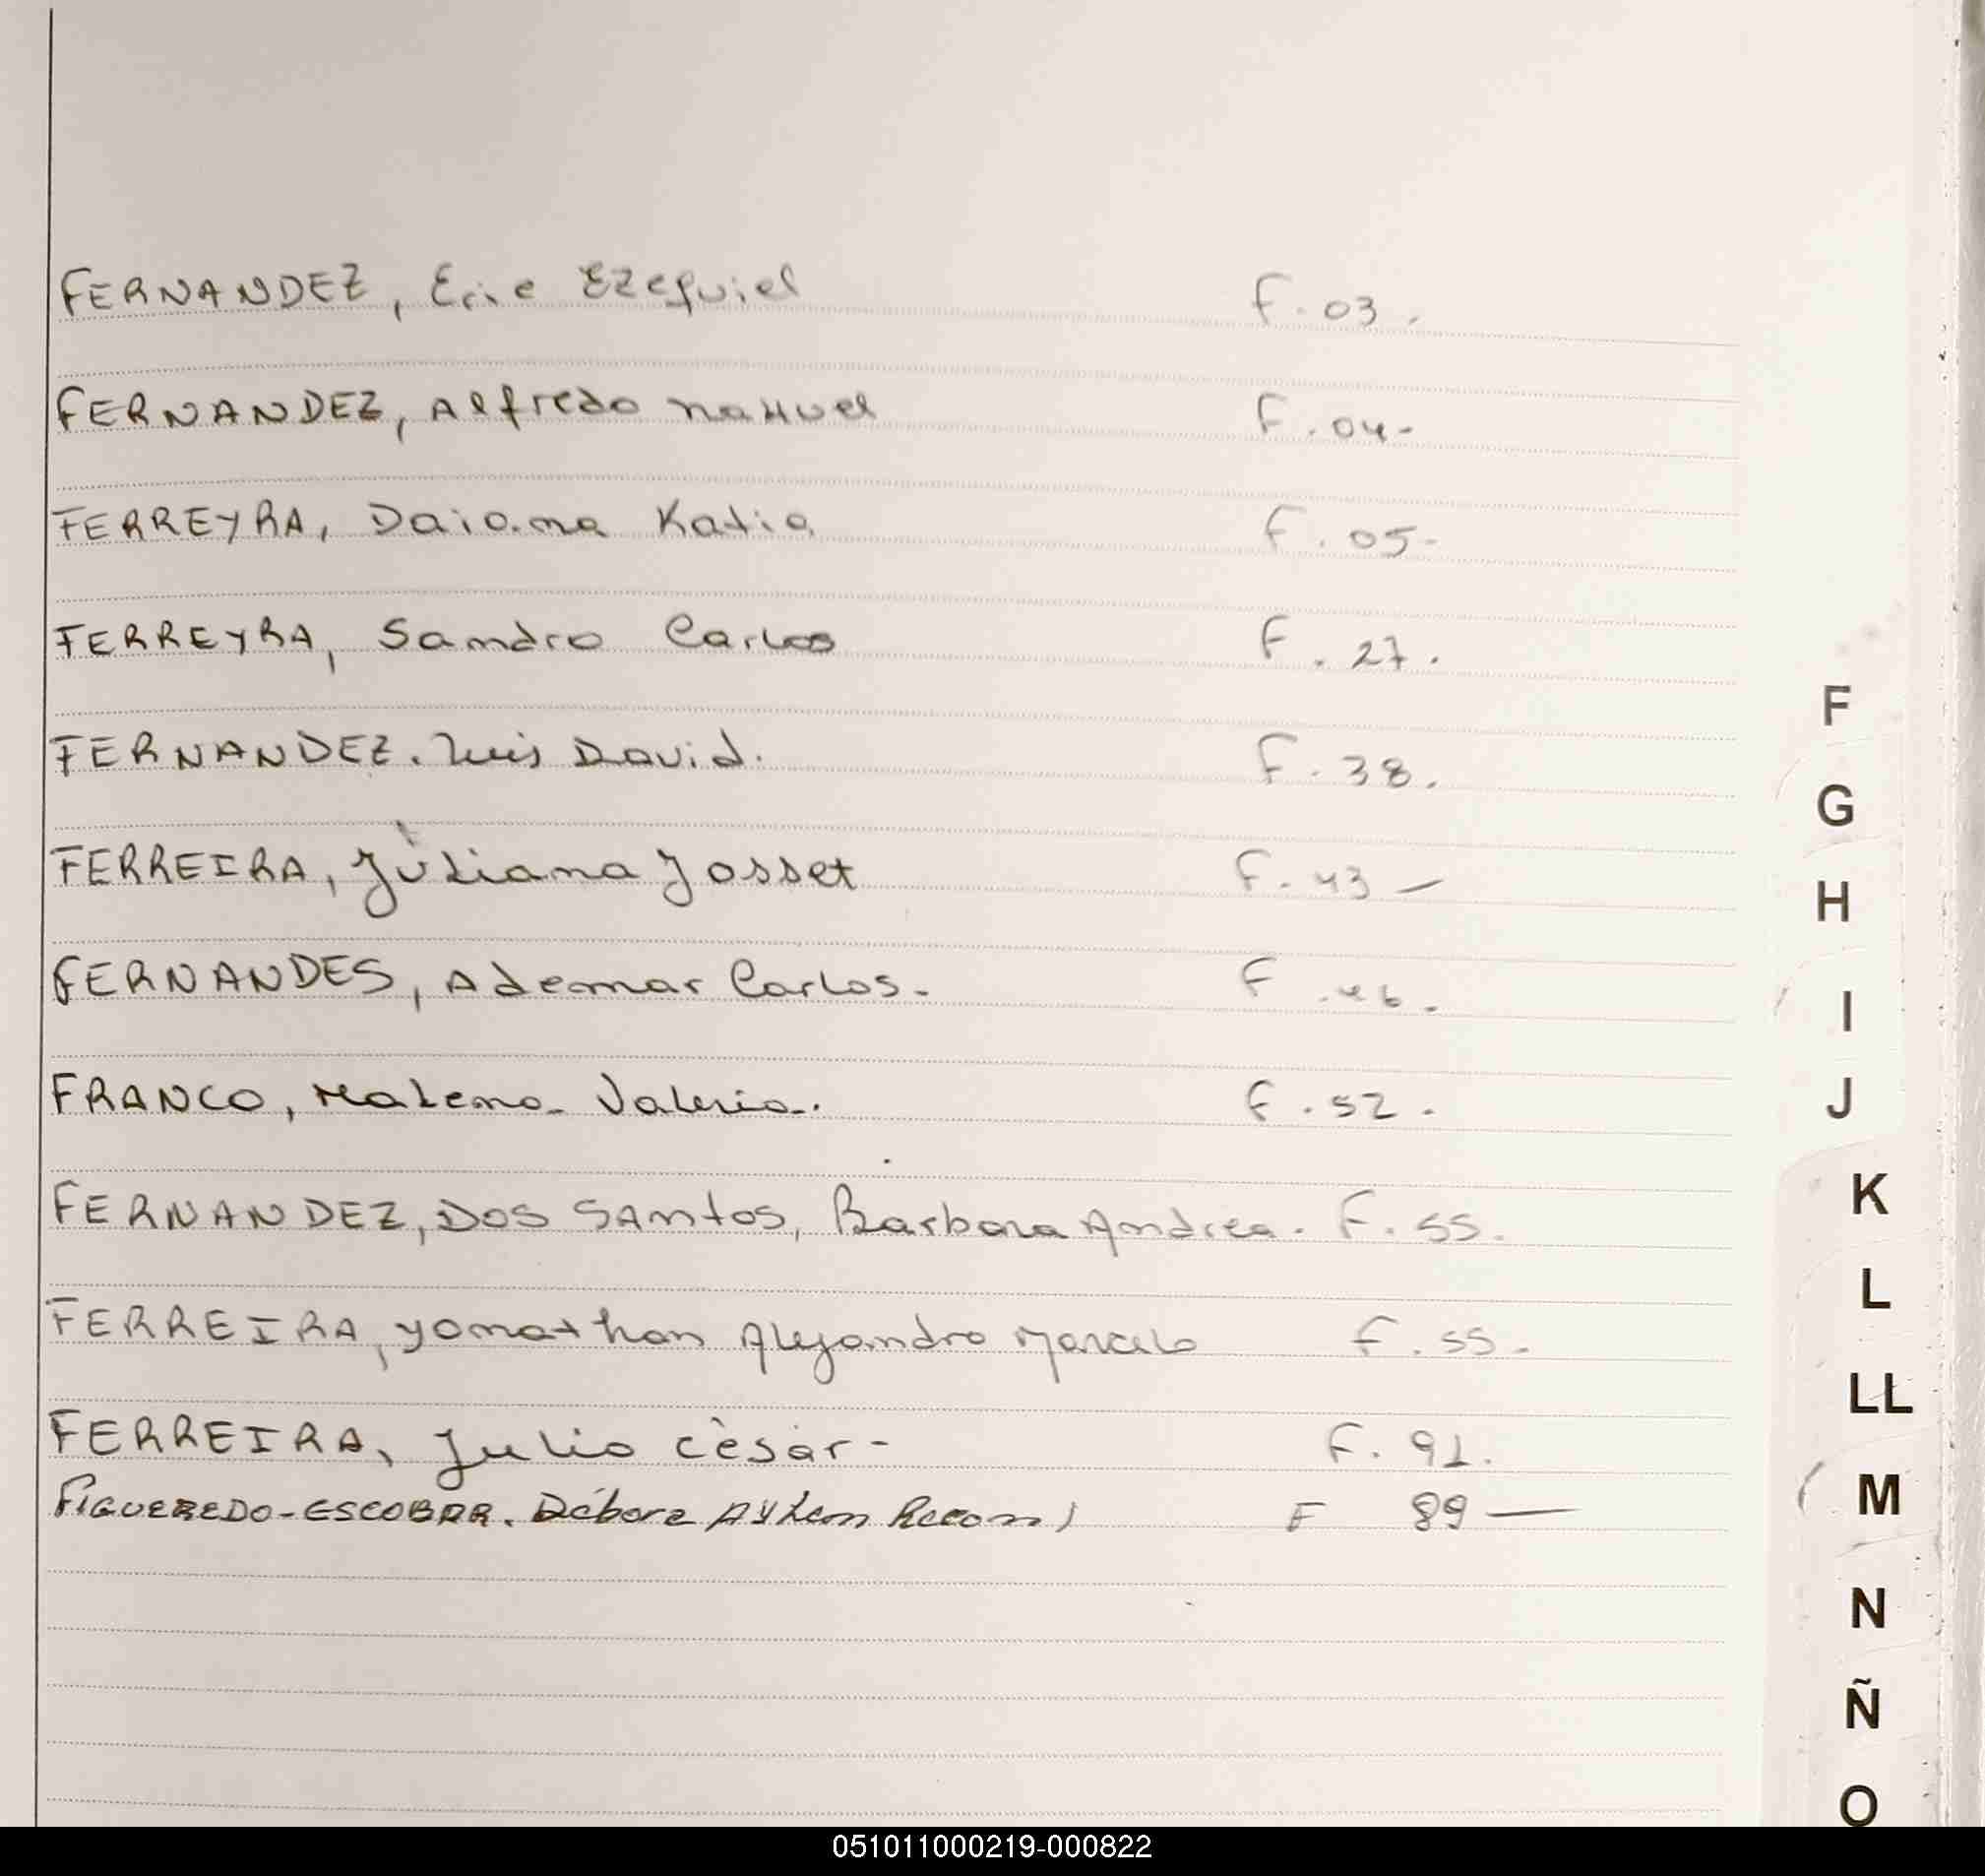 FERNANDEZ, Eric Ezequiel F. 03.
FERNANDEZ, Alfredo naHuel F. 04-
FERREYRA, Daiana Katia F. 05-
FERREYRA, Sandro Carlos F. 27.
FERNANDEZ. Luis David. F. 38.
FERREIRA, Juliana Josset F. 43 -
FERNANDES, Ademar Carlos. F. 46.
FRANCO, Malena Valeria. F. 52.
FERNANDEZ, DOS SANTOS, Barbara Andrea. F. 55.
FERREIRA, yonathan Alejandro Marcelo F. 55.
FERREIRA, Julio cèsar- F. 91.
FIGUEREDO-ESCOBAR. Débora Aylem F 89 —
F
G
H
I
J
K
L
LL
M
N
Ñ
O
051011000219-000822